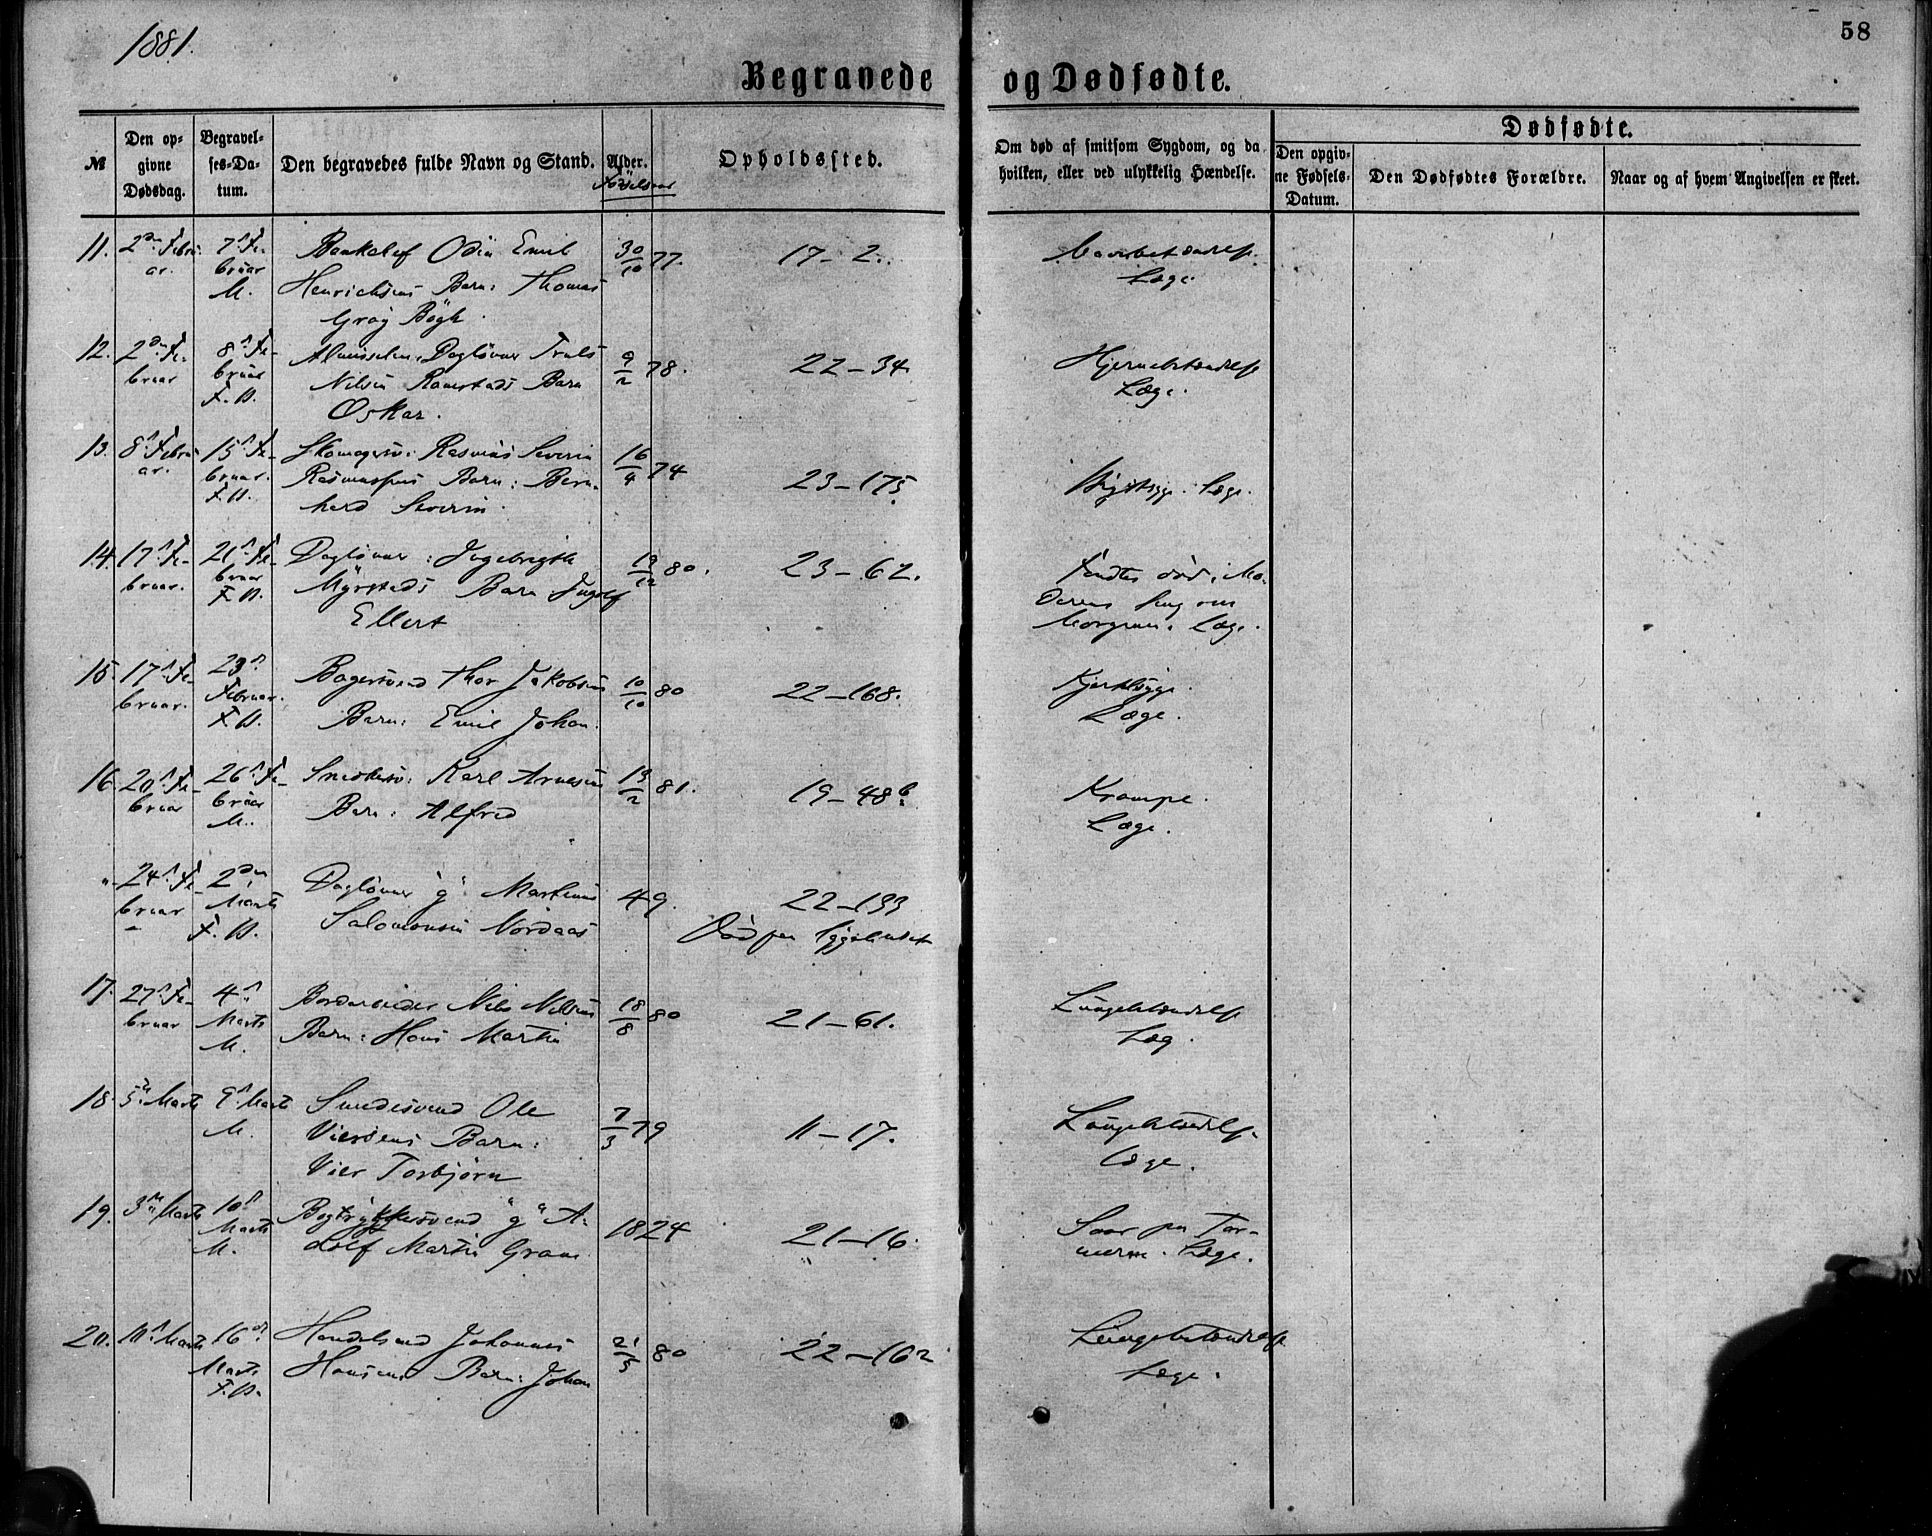 1881.
58
Begravede og Dødfødte.
№
Den opgivne Dødsdag.
Begravelses-Datum.
Den begravedes fulde Navn og Stand.
Alder.
Fødselsaar
Opholdssted.
Om død af smitsom Sygdom, og da
hvilken, eller ved ulykkelig Hændelse.
Dødfødte.
Den opgivne Fødsels-Datum.
Den Dødfødtes Forældre.
Naar og af hvem Angivelsen er skeet.
11. 2den Februar. 7de Februar M. Odin Emil 30/10 77. 17–2.
Henrichsens Barn: Thomas Læge.
Grøg Bøgh.
12. 2den Februar 8de Februar F. B. Dagløner Truls 9/2 78. 22–34. Hjernebetændelse
Nilsen Ramstads Barn Læge.
Oskar.
13. 8de Februar. 15de Februar. F. B. Skomagersv: Rasmus Severin 16/4 74 23–175. Brystsyge. Læge.
Rasmussens Barn: Bernhard Severin.
14. 17de Februar. 21de Februar F. B. Dagløner: Ingebrigth 19/12 80. 23–62. Fandtes død i Moderens Seng om
Myrstads Barn Ingolf Morgenen. Læge.
Ellert
15. 17de Februar. 23de Februar. F. B. Bagersvend Thor Jakobsens 10/10 80 22–168. Kjertelsyge.
Barn: Emil Johan. Læge.
16. 20de Februar 26de Februar M. Snedkersv: Karl Arnesens 13/2 81. 19–48b. Krampe.
Barn: Alfred Læge.
" 24de Februar 2den Marts F. B. Dagløner "g" Martinus 49. 22–133
Salomonsen Nordaas Død paa Sygehuset
17. 27de Februar 4de Marts M. Bordarbeider Nils Nilsens 18/8 80 21–61. Lungebetændelse
Barn: Hans Martin Læg.
18. 5te Marts 9de Marts M. Smedesvend Ole 7/3 79 11–17. Lungebetændelse
Barn: Læge.
Vier Torbjørn
19. 3die Marts 10de Marts M. Bogtrykkersvend "g" Adolf Martin Gram 1824 21–16. Saar paa Tarmerne. Læge.
20. 10de Marts 16de Marts F. B. Johannes 21/5 80 22–162 Lungebetændelse
Hansens Barn: Johan Læge.